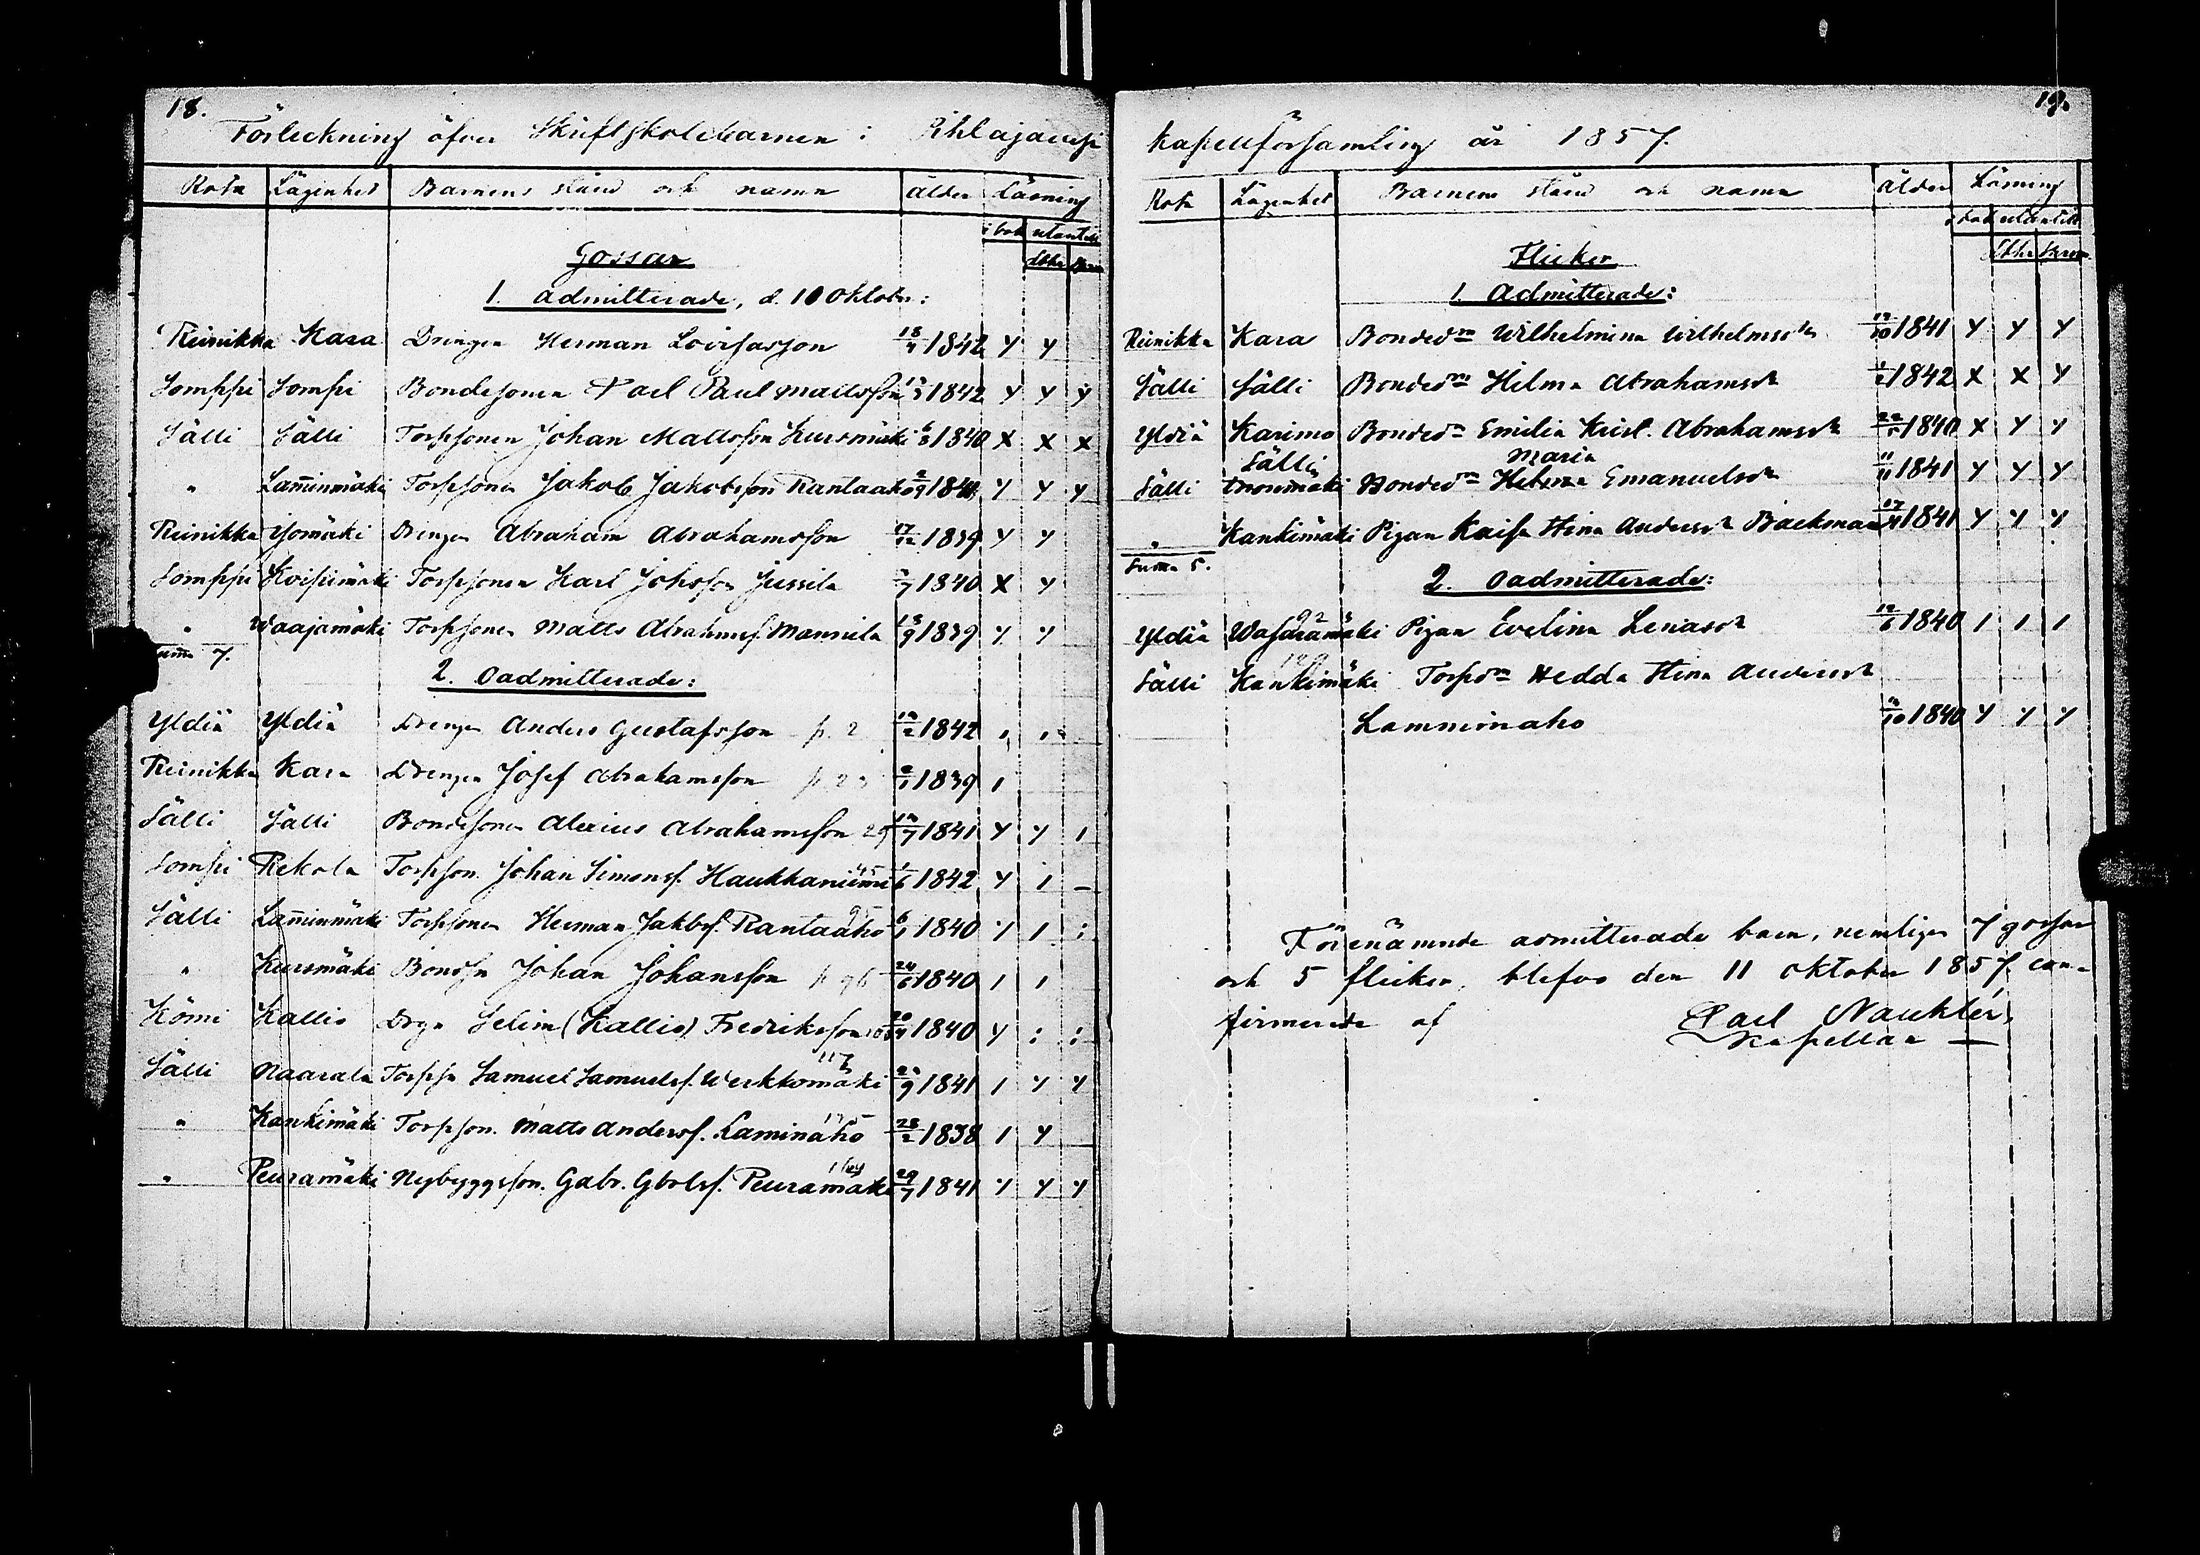 18.
Förteckning öfver Skriftskolebarnen i Pihlajavesi
Rota Lägenhet Barnens stånd och namn ålder Läsning
i bok utantill
Gossar
1. admitterade, d. 10 Oktober:
Reinikka Kara Drengen Herman Lovisasson 1842 y y
Somppi Sompi Bondesonen Karl Paul Mattsson 1842 y y y
Sälli Sälli Torpsonen Johan Mattsson Kursmäki 1840 x x x
" Lam̄inmäki Torpsonen Jakob Jakobsson Rantaaho y y y
Reinikka Drengen Abraham Abrahamsson 17/12 1839 y y
Somppi Torpsonen Karl Johsson Jussila 1840 x y
" Waajamäki Torpsonen Matts Abrahamss. Mannila 1839 y y
Sum̄a 7.
2. Oadmitterade:
Yldiä Yldiä Drengen Anders Gustafsson p. 2 1842 , ,
Reinikka Kara Drengen Josef Abrahamsson 1839 1
Sälli Sälli Bondesonen Alexius Abrahamsson 29 1841 y y 1
Sompi Rekola Torpson. Johan Simonss. Haukkaniemi 1842 y 1 –
Sälli Lam̄inmäki Torpsonen Herman Jakbss. Rantaaho 1840 y 1 :
" Kursmäki Bondsn Johan Johansson p 96 1840 1 1
Kömi Kallio Drgn Selim (Kallio) Fredriksson 1840 y : :
Sälli Naarala Torpsn Samuel Samuelss. Werkkomäki 1841 1 y y
" Kankimäki Torpson. Matts Anderss. Laminaho 28/2 1838 1 y
" Peuramäki Nybyggsson. Gabr. Gbrlss. Peuramäki 1841 y y y
19.
Kapellförsamling år 1857.
Rota Lägenhet Barnens stånd och namn ålder Läsning
i bok utantill
Flickor
1. Admitterade:
Reinikka Kara Bondedn Wilhelmina Wilhelmsdr 1841 y y y
Sälli Sälli Bondedn Helma Abrahamsdr 1842 x x y
Yldiä Karimo Bondedn Emilia Krist. Abrahamsdr 1840 x y y
Sälli Maria
Sälli Bondedn Helena Emanuelsdr 11/11 1841 y y y
" Kankimäki Pigan Kaisa Stina Andersdr Backman 1841 y y y
Sum̄a 5.
2. Oadmitterade:
Yldiä Pigan Evelina Lenasdr 1840 1 1 1
Sälli Kankimäki Torpdn Hedda Stina Andersdr
Lamminaho 1840 y y y
Förenämnde admitterade barn, nemligen 7 gossar
och 5 flickor, blefvo den 11 Oktober 1857 con-
firmerade af Carl Nauklér,
Kapellan